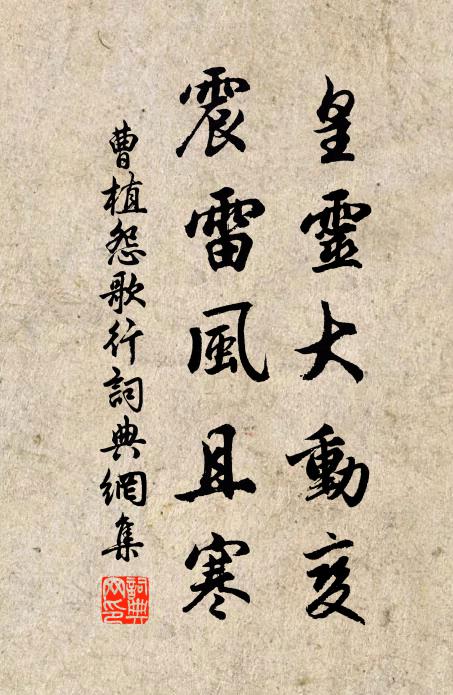 皇靈大動变
震雷風且寒
曹植怨歌行詞典網集
詞典网印